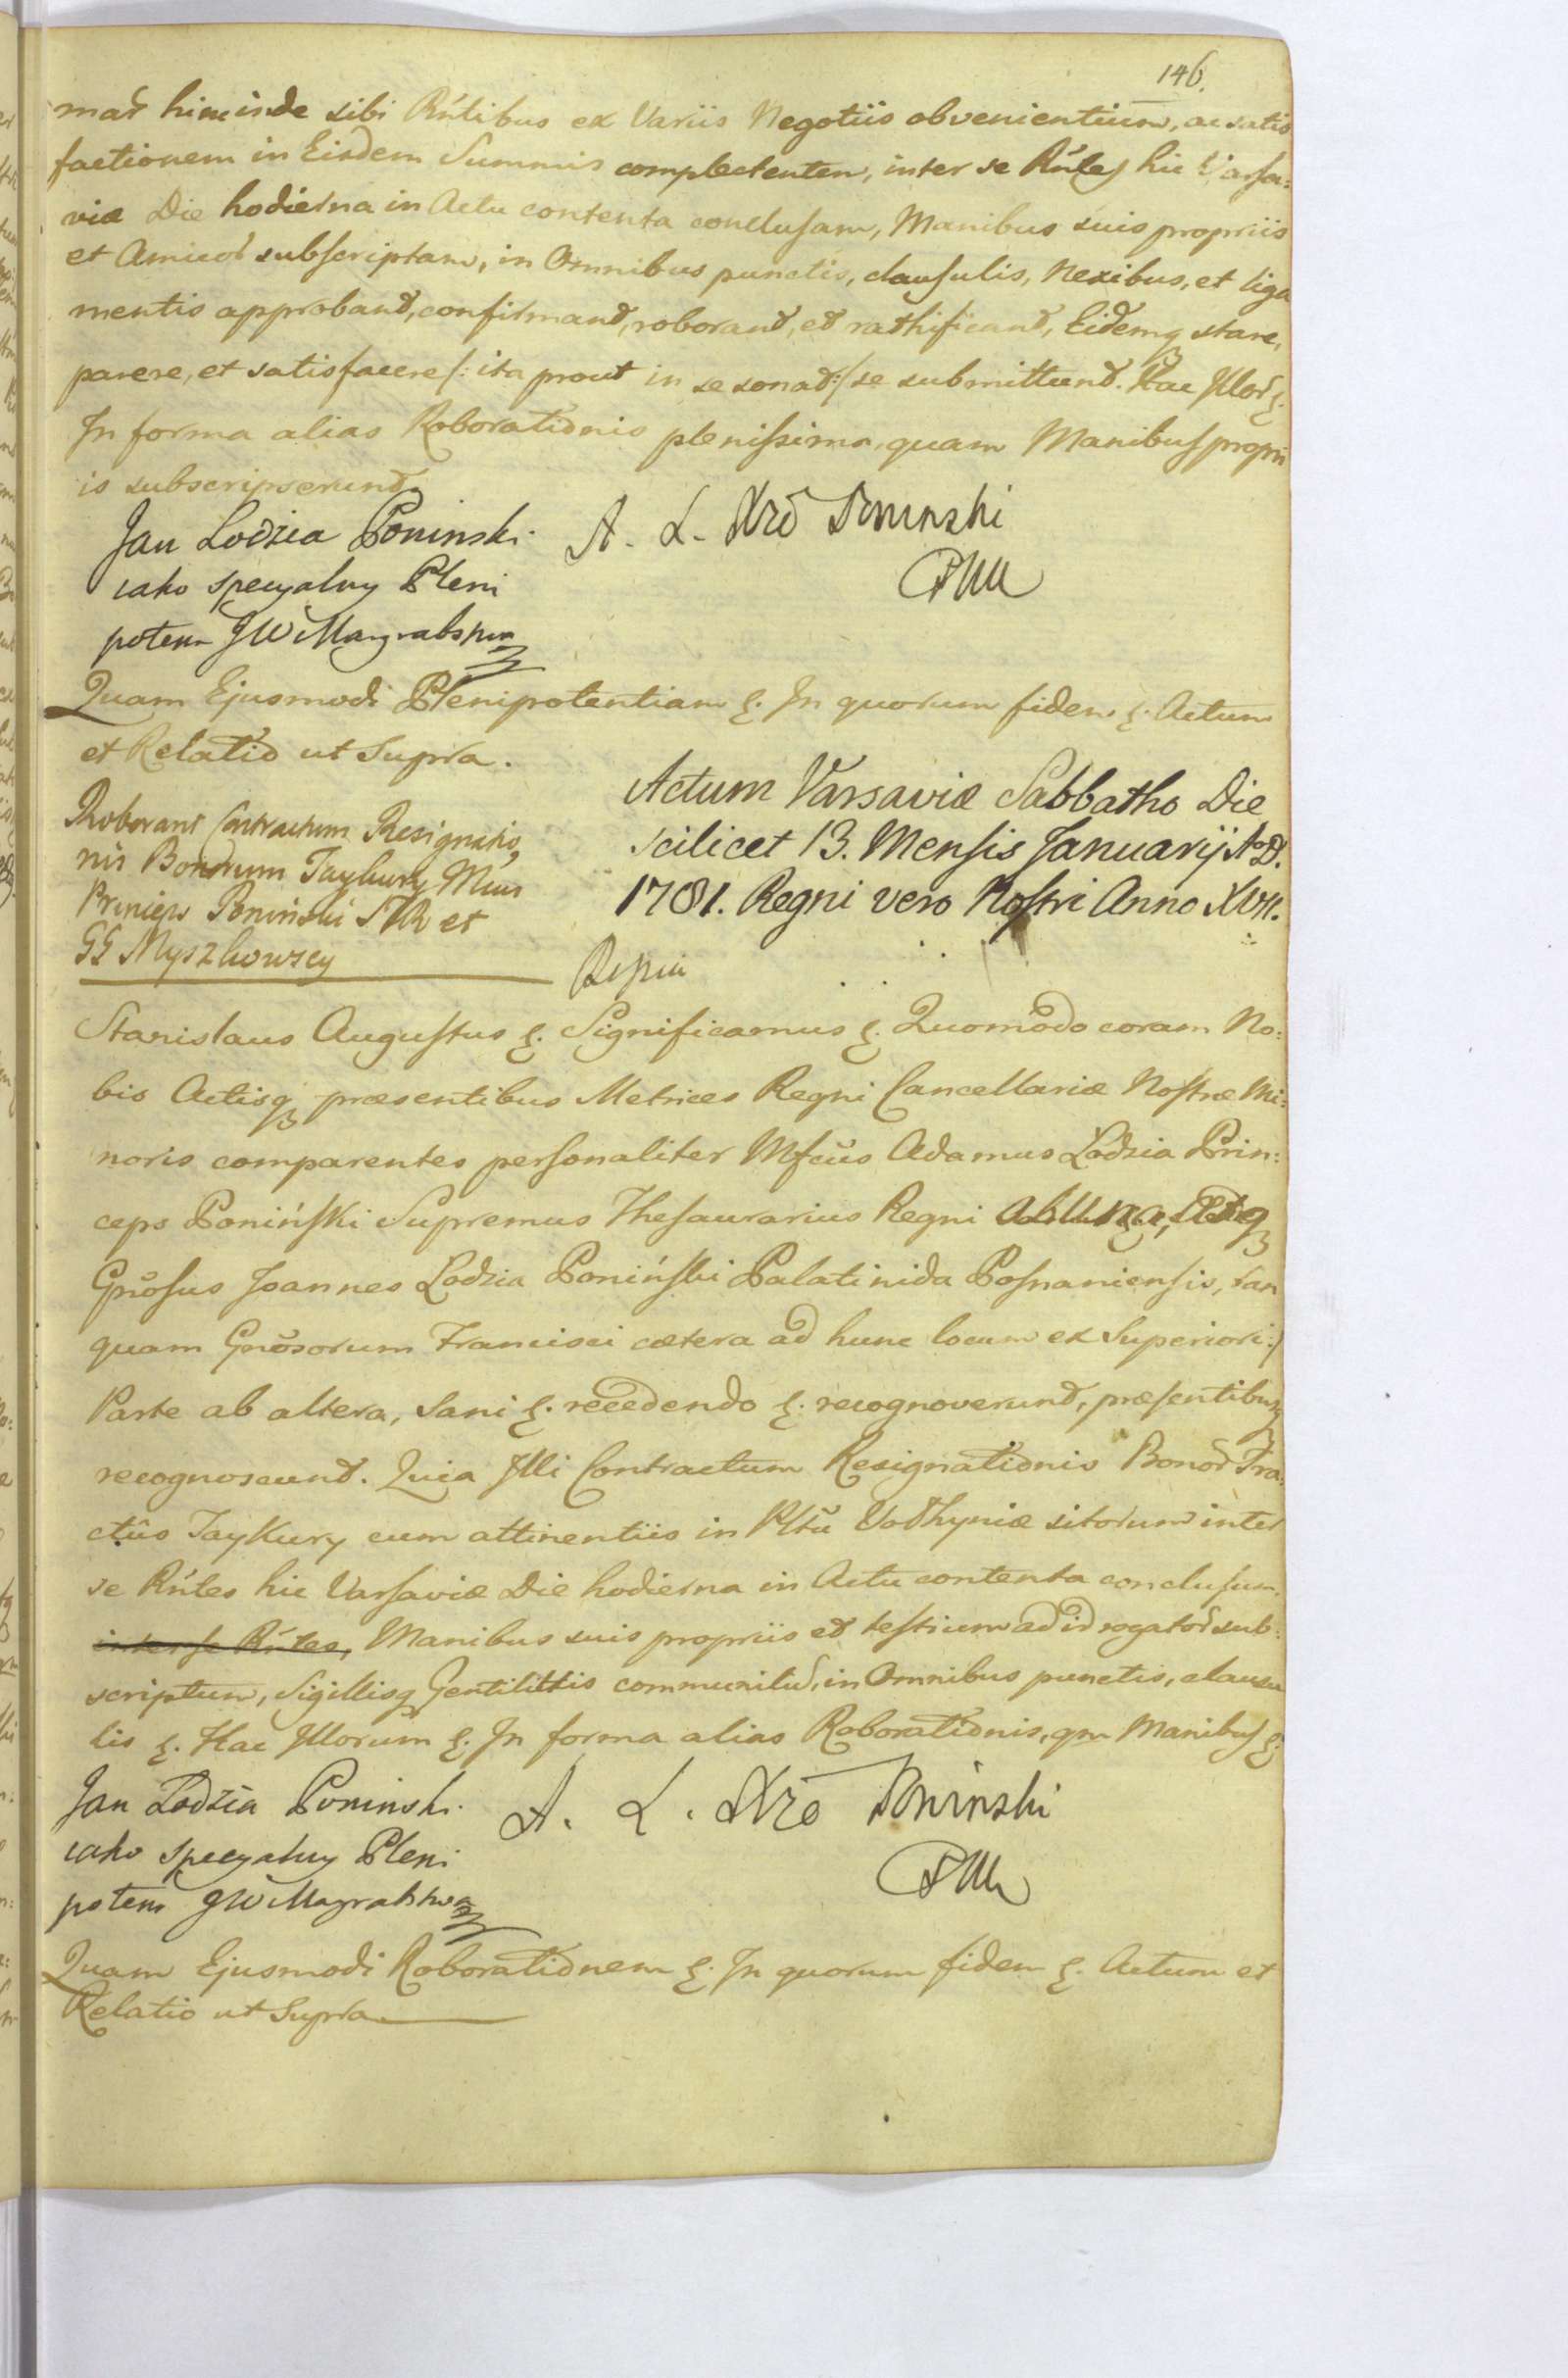 146.
mar hincinde sibi Rntibus ex Variis Negotiis obvenientium, ac satis
factionem in Eisdem Summis complectentem, inter se Rntes hic Varsa:
viæ Die hodierna in Actu contenta conclusam, Manibus suis propriis
et Amicor subscriptam, in Omnibus punctis, clausulis, Nexibus, et liga
mentis approbant, confirmant, roborant, et rathificant, Eidemq stare,
parere, et satisfacere /: ita prout in se sonat :/ se submittunt. Hac Illor &.
In forma alias Roborationis plenissima, quam Manibus propri
is subscripserunt.
Jan Lodzia Poninski A. L. Xże Poninski
iako specyalny Pleni
potent JW Margrabstwa
Quam Ejusmodi Plenipotentiam &. In quorum fidem &. Actum
et Relatio ut Supra.
Roborant Contractum Resignatio,
nis Bonorum Taykury Mcus
Princeps Poniński STR et
GG Myszkowscy
Actum Varsaviæ Sabbatho Die
scilicet 13. Mensis Januarij Ao D.
1781. Regni vero Nostri Anno XVII.
Stanislaus Augustus &. Significamus &. Quomodo coram No:
bis Actisq præsentibus Metrices Regni Cancellariæ Nostræ Mi:
noris comparentes personaliter Mfcus Adamus Lodzia Prin:
ceps Poniński Supremus Thesaurarius Regni ab una,
Gnosus Joannes Lodzia Poniński Palatinida Posnaniensis, tan
quam Gnosorum Francisci cætera ad hunc locum ex Superiori :/
Parte ab altera, Sani &. recedendo &. recognoverunt, præsentibusq
recognoscunt. Quia Illi Contractum Resignationis Bonor Tra
ctûs Taykury cum attinentiis in Pltu Volhyniæ sitorum inter
se Rntes hic Varsaviæ Die hodierna in Actu contenta conclusum,
inter se Rntes, Manibus suis propriis et testium ad id rogator sub:
scriptum, Sigillisq Gentilitiis communitum, in Omnibus punctis, clausu
lis &. Hac Illorum &. In forma alias Roborationis, qm Manibus &.
Jan Lodzia Poninski A. L. Xże Poninski
iako specyalny Pleni
potent JW Margrabstwa
Quam Ejusmodi Roborationem &. In quorum fidem &. Actum et
Relatio ut Supra